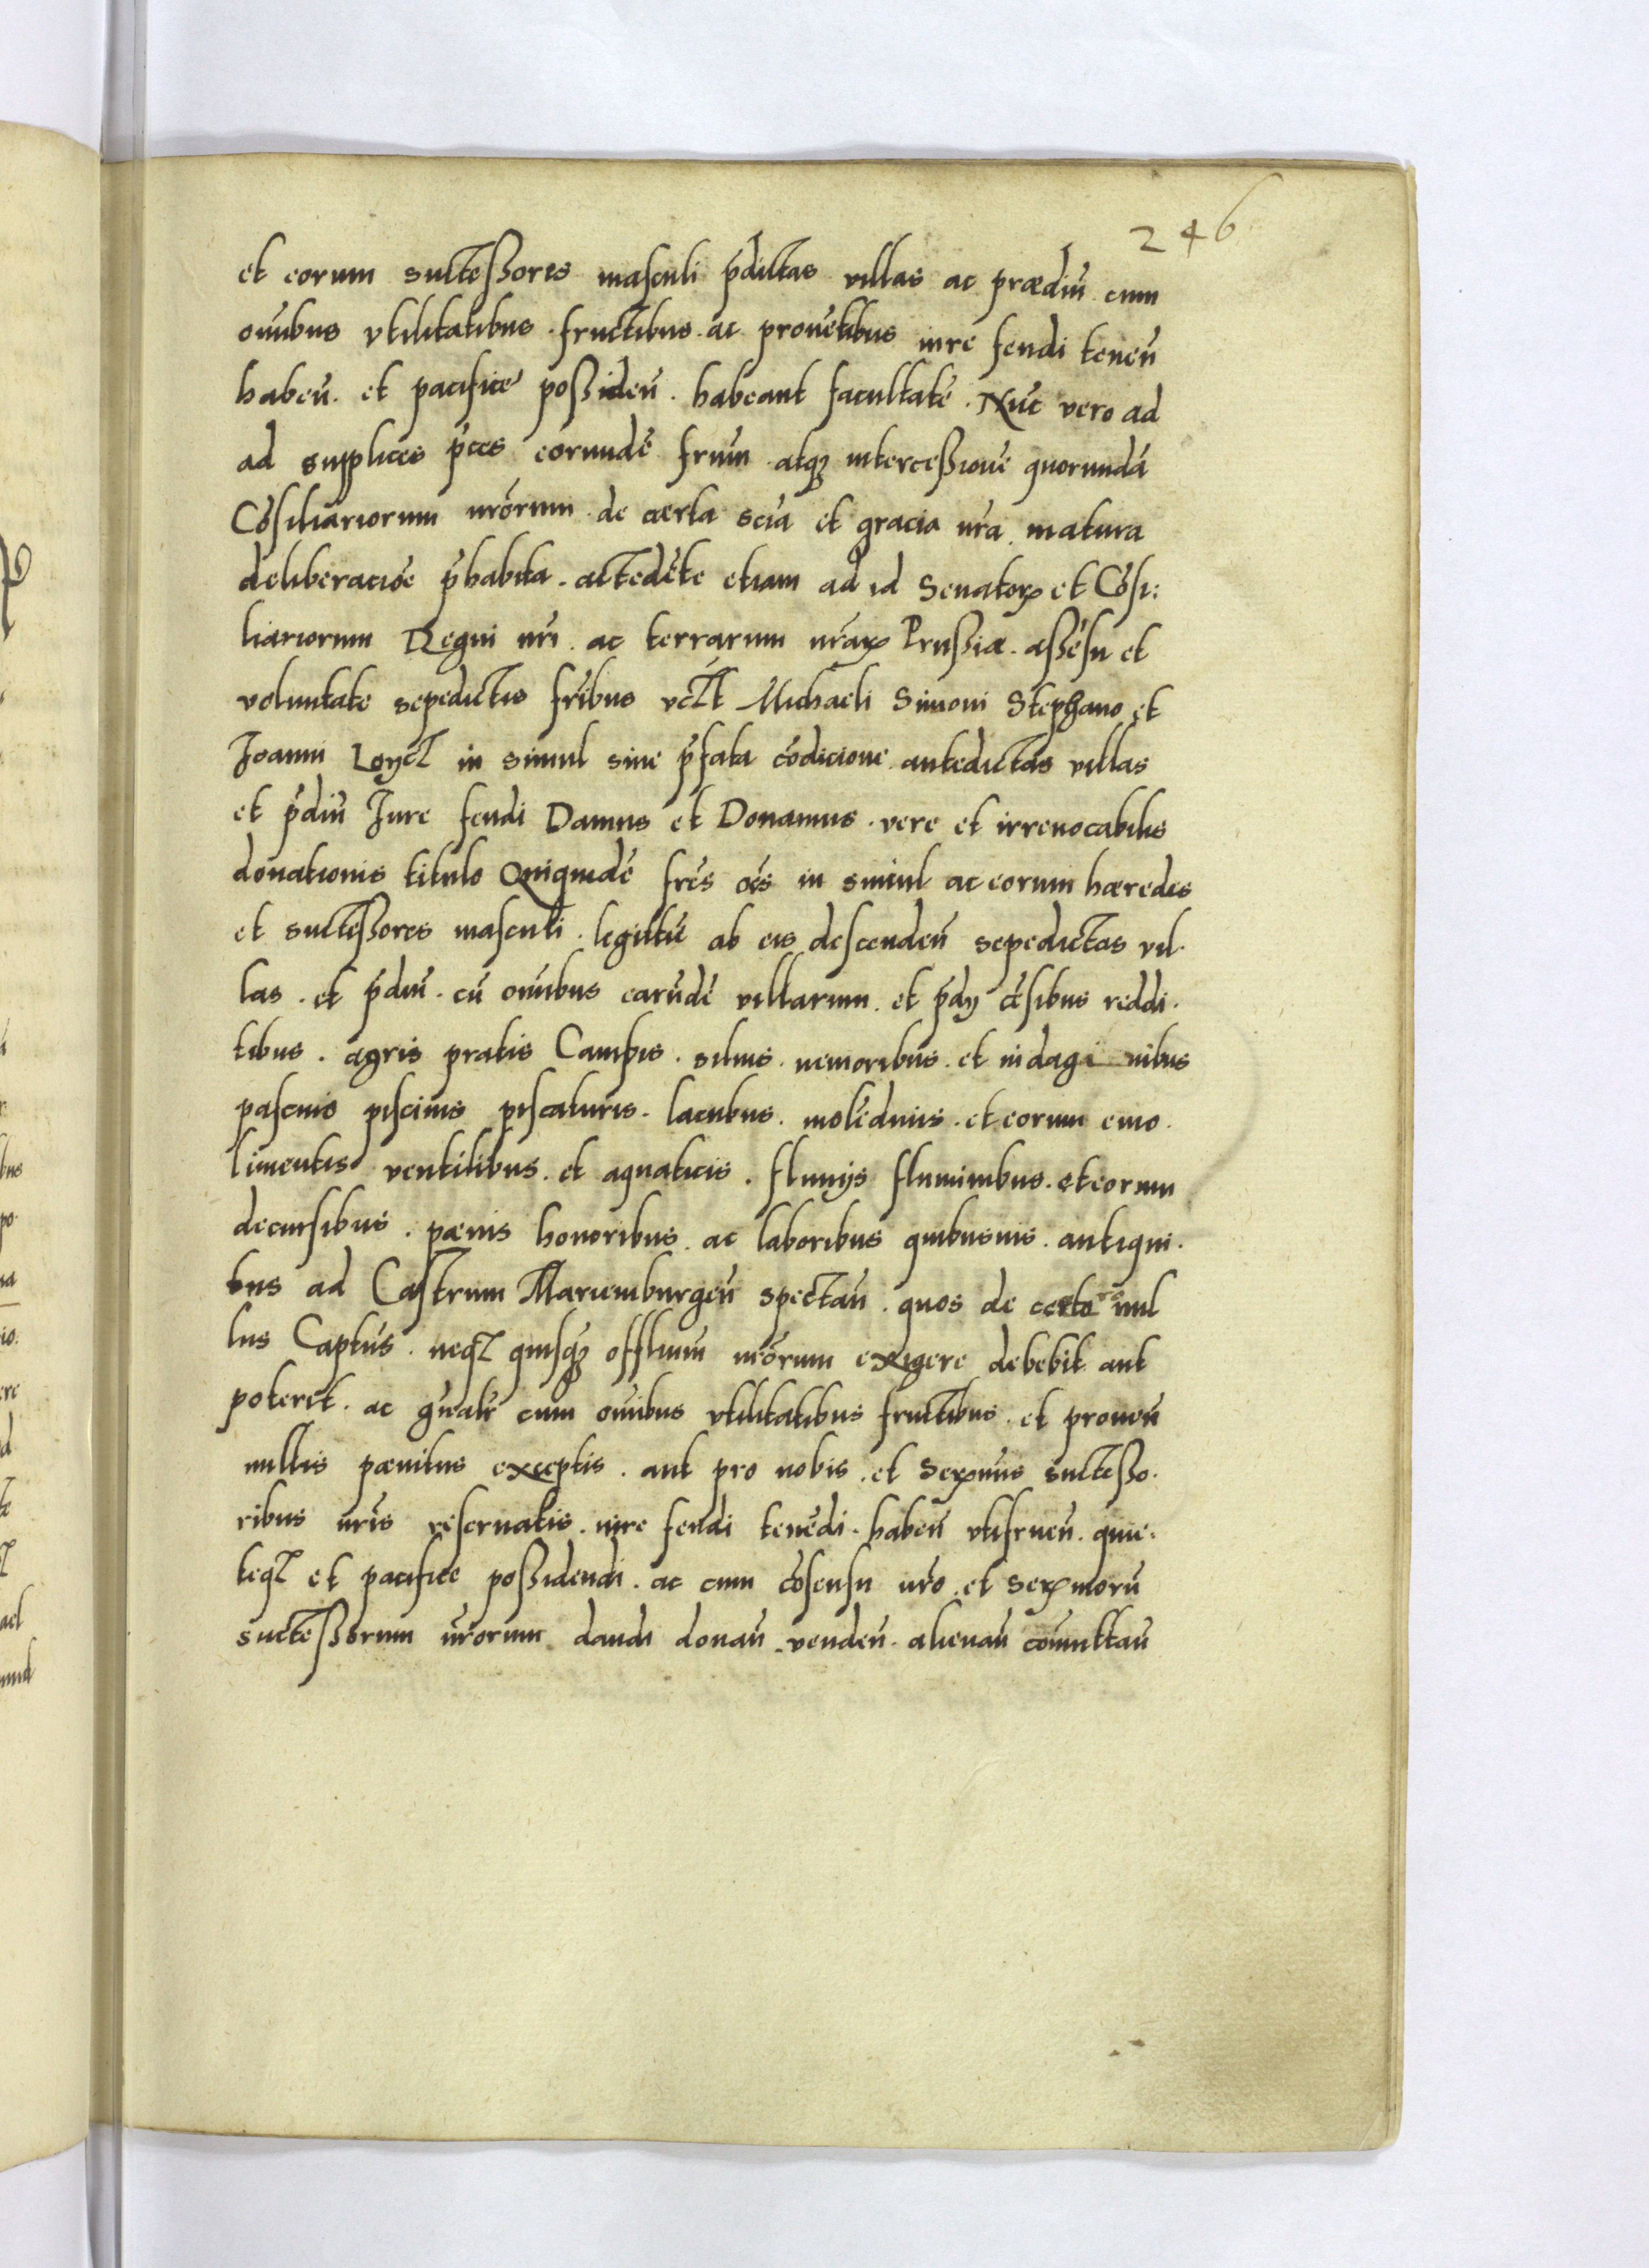 246
et eorum successores masculi p̄dictas villas ac prædiū cum
om̄ibus vtilitatibus . fructibus . ac prouētibus iure feudi teneñ
habeñ . et pacifice possideñ . habeant facultatē . Nūc vero ad
ad supplices p̄ces eorundē frūm atq₃ intercessione quorundā
Cōsiliariorum nrōrum de certa sciā et gracia nrā . matura
deliberaciōe p̄habita . accedēte etiam ad id Senatorꝝ et Cōsi:
liariorum Regni nrī . ac terrarum nrāꝝ Prussiæ . assēsu et
voluntate sepedictis frībus vcꝫt Michaeli Simoni Stephano et
Joanni Loycꝫ in simul siue p̄fata cōdicione antedictas villas
et p̄diū Jure feudi Damus et Donamus . vere et irreuocabilis
donationis titulo Quiquidē frēs oēs in simul ac eorum hæredes
et successores masculi . legittiē ab eis descendeñ sepedictas vil.
las . et p̄diū . cū om̄ibus earūdē villarum . et p̄dij cēsibus reddi.
tibus . agris pratis Campis . siluis . nemoribus . et indagi nibus
pascuis piscinis piscaturis . lacubus . molēdinis . et eorum emo.
limentis ventilibus . et aquaticis . fluuijs fluminibus . et eorum
decursibus . pænis honoribus . ac laboribus quibusuis . antiqui.
tus ad Castrum Mariemburgeñ spectañ . quos de certo nul
lus Captus . neqꝫ quisq₃ officiūm nrōrum exigere debebit aut
poterit . ac gn̄alr̄ cum om̄ibus vtilitatibus fructibus . et proueñ
nullis pænitus exceptis . aut pro nobis . et Serꝫmis successo.
ribus nrīs reseruatis . iure feudi tenēdi . habeñ vtifrueñ . quie.
teqꝫ et pacifice possidendi . ac cum cōsensu nrō . et Serꝫmorū
successorum nrōrum dandi donañ . vendeñ . alienañ cōmuttañ